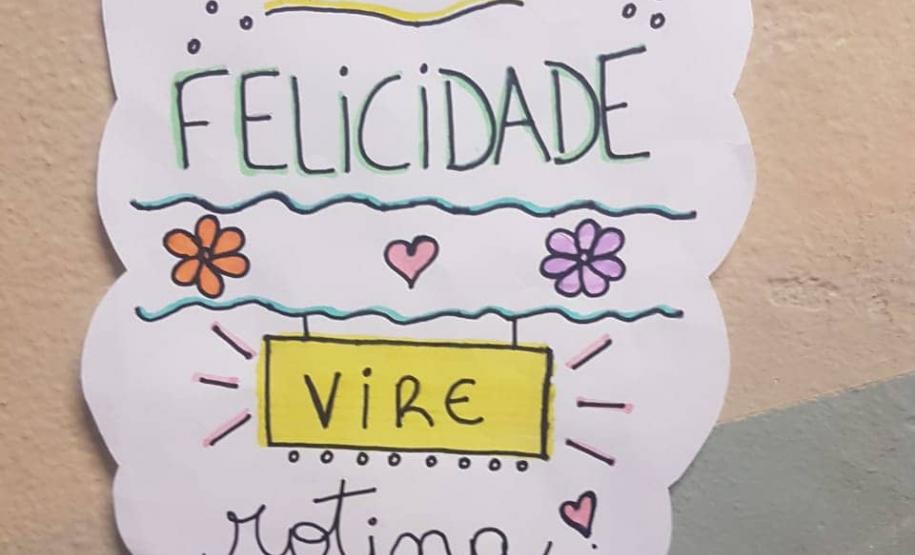 FELiCiDADE
ViRE
rotina!